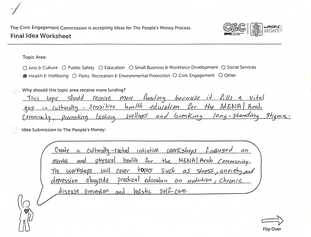 The Civic Engagement Commission is accepting ideas for The People's Money Process
Final Idea Worksheet
CEC
Topic Area:
Arts & Culture Public Safety Education Small Business & Workforce Development Social Services
Health & Wellbeing Parks, Recreation & Environmental Protection Civic Engagement Other
Why should this topic area receive more funding?
This topic should receive more funding because it fills a vital
gap in culturally-sensitive health education for the MENA/Arab
Community, promoting lasting wellness and breaking long-standing stigmas.
Idea Submission to The People's Money:
Create a culturally-rooted initiative workshops focused on
mental and physical health for the MENA/Arab Community.
The workshops will cover topics such as stress, anxiety, and
depression alongside practical education on nutrition, chronic
disease prevention and holistic self-care.
Flip Over